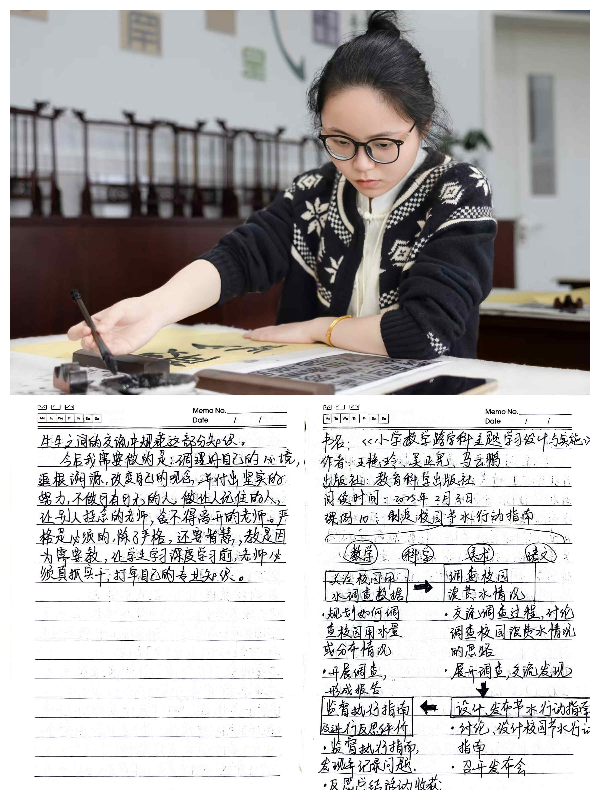 Memo No.
Date / /
生生之间的交流中现获这部分知识。
今后我需要做的是：调理好自己的心境，
追根溯源，改变自己的观念，并付出坚实的
努力，不做可有可无的人，做让人记住的人，
让别人挂念的老师，舍不得离开的老师。严
格是必须的，除了严格，还要智慧，教是因
为需要教，让学生学习深度学习前，老师必
须真抓实干，打牢自己的专业知识。
Memo No.
Date / /
书名：《小学数学跨学科主题学习设计与实施》
作者：王艳玲、吴正宪、马云鹏
出版社：教育科学出版社
阅读时间：2025年2月3日
课例10：制定校园节水行动指南
数学 科学 美术 语文
关注校园用
水调查数据
调查校园
浪费水情况
·规划如何调
查校园用水量
或分布情况
·开展调查，
形成报告
·交流调查过程，讨论
调查校园浪费水情况
的思路
·展开调查，交流发现
监督执行指南
及进行反思评价
设计、发布节水行动指南
·监督执行指南，
发现并记录问题.
·反思总结活动收获
·讨论、设计校园节水行动
指南
·召开发布会